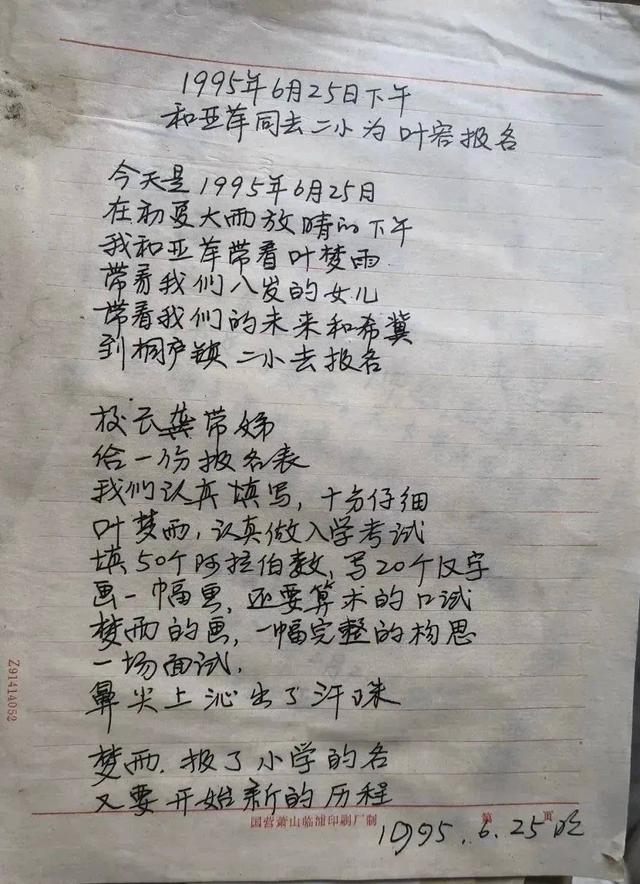 1995年6月25日下午
和亚萍同去二小为叶容报名
今天是1995年6月25日
在初夏大雨放晴的下午
我和亚萍带着叶梦雨
带着我们的女儿
带着我们的未来和希冀
到桐庐镇二小去报名
校长龚带娣
给一份报名表
我们认真填写，十分仔细
叶梦雨，认真做入学考试
填50个阿拉伯数，写20个汉字
画一幅画，还要算术的口试
梦雨的画，一幅完整的构思
一场面试，
鼻尖上沁出了汗珠
梦雨，报了小学的名
又要开始新的历程
国营萧山临浦印刷厂制
第 页
1995.6.25晚
Z91414052